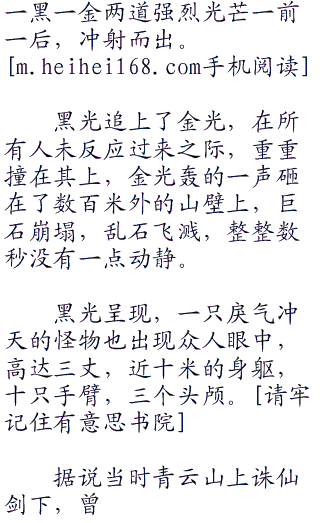 一黑一金两道强烈光芒一前
一后，冲射而出。
[m.heihei168.com手机阅读]
黑光追上了金光，在所
有人未反应过来之际，重重
撞在其上，金光轰的一声砸
在了数百米外的山壁上，巨
石崩塌，乱石飞溅，整整数
秒没有一点动静。
黑光呈现，一只戾气冲
天的怪物也出现众人眼中，
高达三丈，近十米的身躯，
十只手臂，三个头颅。[请牢
记住有意思书院]
据说当时青云山上诛仙
剑下，曾